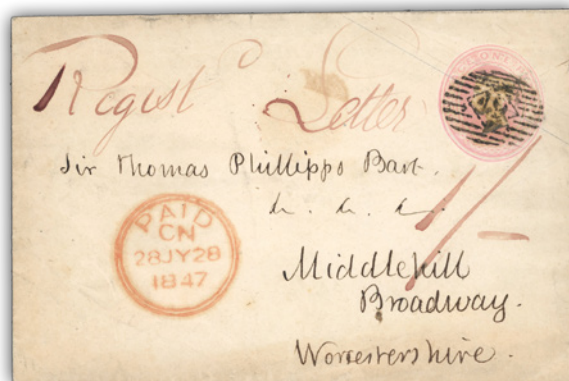 Regist Letter
Sir Thomas Phillipps Bart.
&. &. &.
1/-
PAID
CN
28JY28
1847
Middlehill
Broadway.
Worcestershire.